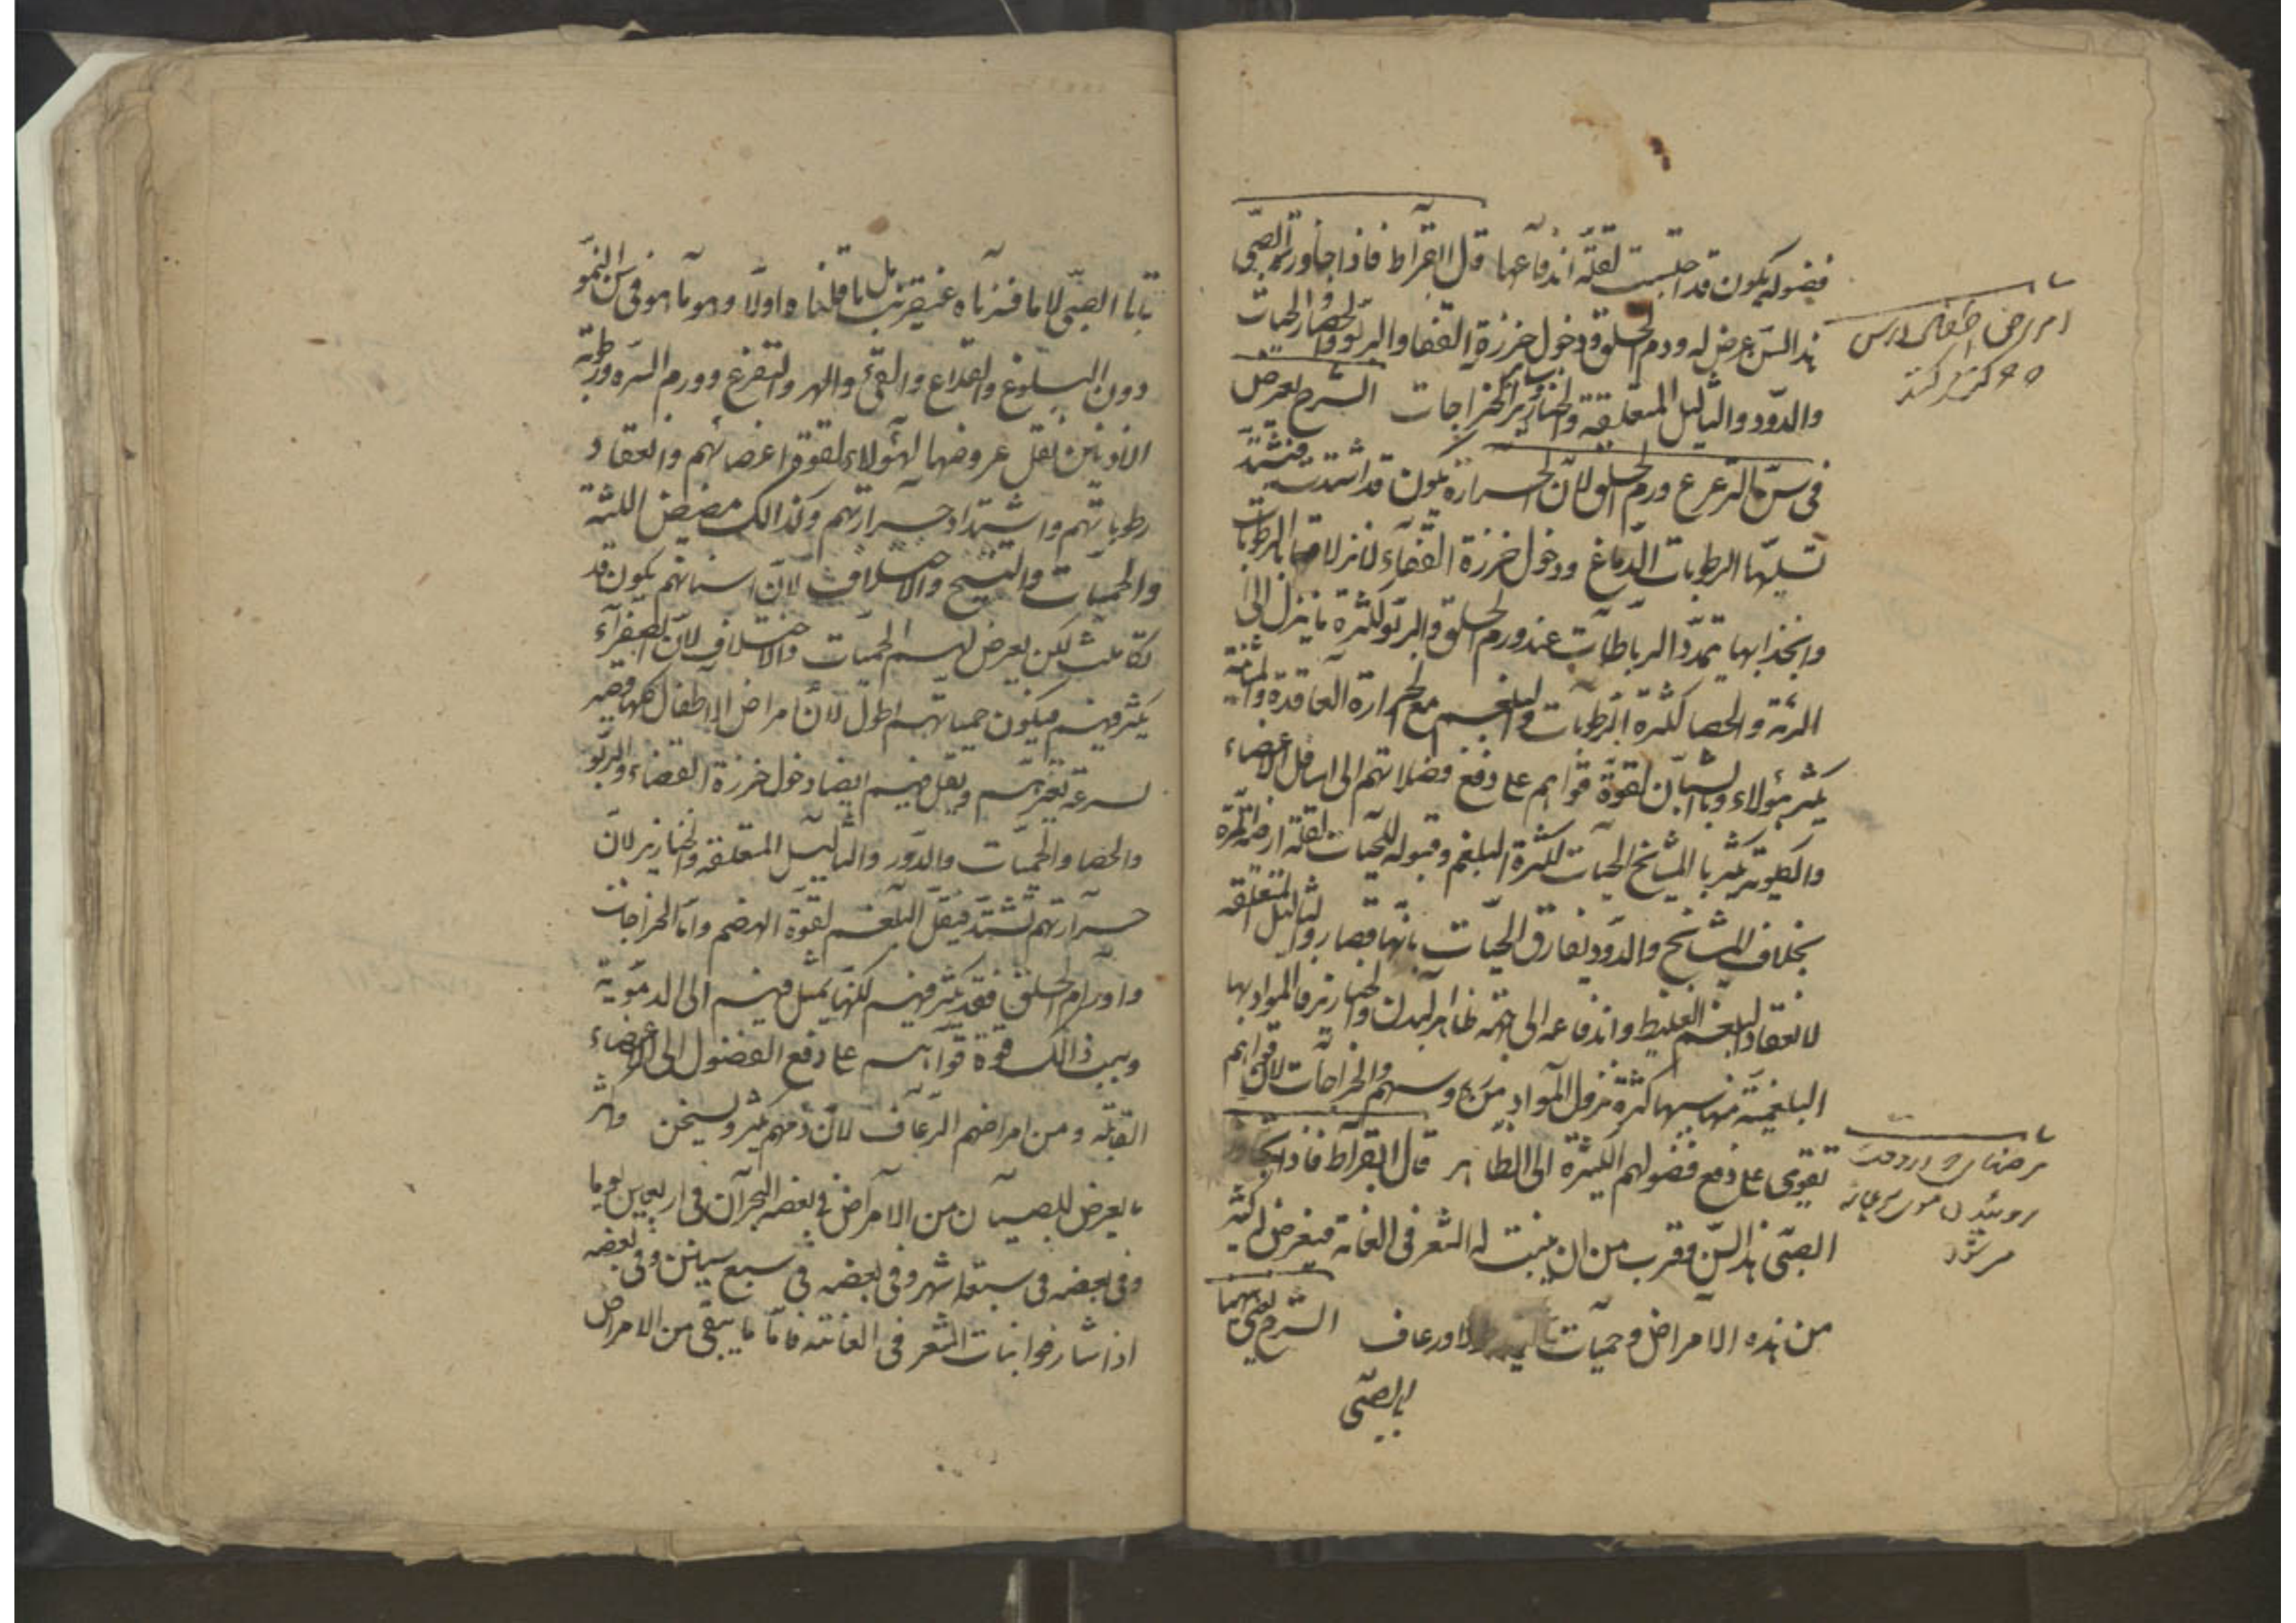 فضوله يكون قد احتبست لقلة اندفاعها قال ابقراط فاذا جاوز الصبى
هذا السن عرض له ورم الحلق ودخول خرزة القفا والربو والحصار الحيات
والدود والثاليل المتعلقة والخنازير وسائر الخراجات الشرح يعرض
فى سن الترعرع ورم الحلق لان الحرارة يكون قد اشتدت فتشتد
تسيلها الرطوبات الدماغ ودخول خرزة القفاء لانزلاقها بالرطوبات
وانجذابها تمدد الرباطات عند ورم الحلق والربو لكثرة ما ينزل الى
الرئة والحصا لكثرة الرطوبات والبلغم مع الحرارة العاقدة والمثانة
يكثر هؤلاء وبالشبان لقوة قواهم على دفع فضلاتهم الى اسافل الاعضاء
يكثر بالمشايخ الحيات لكثرة البلغم وقبوله للحيات لقلة
بخلاف المشايخ والدود يفارق الحيات بانها قصار والثاليل المتعلقة
لانعقاد البلغم الغليظ واندفاعه الى جهة ظاهر البدن والخنازير فالمواد بها
البلغمية مناسبها كثرة نزول المواد من رؤسهم والخراجات لان قواهم
تقوى على دفع فضولهم الكثيرة الى الظاهر قال ابقراط فاذا تجاوز
الصبى هذا السن وقرب من ان ينبت له الشعر فى العانة فيعرض له كثير
من هذه الامراض وحميات ورعاف الشرح يعنى بهما
بالصبى
امراض اطفال درس
مرضها
روئيدن موى عانه
ميشود
الصبى لا ما فسرناه عنقريب بل ما قلناه اولا وهو ما هو فى سن النمو
دون البلوغ والقلاع والقئ والسهر والتفزع وورم السره ورطوبة
الاذنين فيقل عروضها لهؤلاء لقوة اعضائهم وانعقاد
رطوباتهم واشتداد حرارتهم وكذالك مضيض اللثة
والحميات والتشنج والاختلاف لان اسنانهم يكون قد
تكاملت لكن يعرض لهم الحميات والاختلاف لان الصفراء
يكثر فيهم فيكون حمياتهم اطول لان امراض الاطفال كلها قصير
لسرعة تغيرهم ويقل فيهم ايضا دخول خرزة القفاء والربو
والحصا والحميات والدور والثاليل المتعلقة والخنازير لان
حرارتهم تشتد فيقل البلغم لقوة الهضم واما الخراجات
واورام الحلق فقد يكثر فيهم لكنها يميل فيهم الى الدموية
وسبب ذالك قوة قواهم على دفع الفضول الى الاعضاء
القابلة ومن امراضهم الرعاف لان دمهم يكثر ويسخن وكثر
ما يعرض للصبيان من الامراض فى بعضه البحران فى اربعين يوما
وفى بعضه فى سبعة اشهر وفى بعضه فى سبع سنين وفى بعضه
اذا شارفوا نبات الشعر فى العانته فاما ما يبقى من الامراض